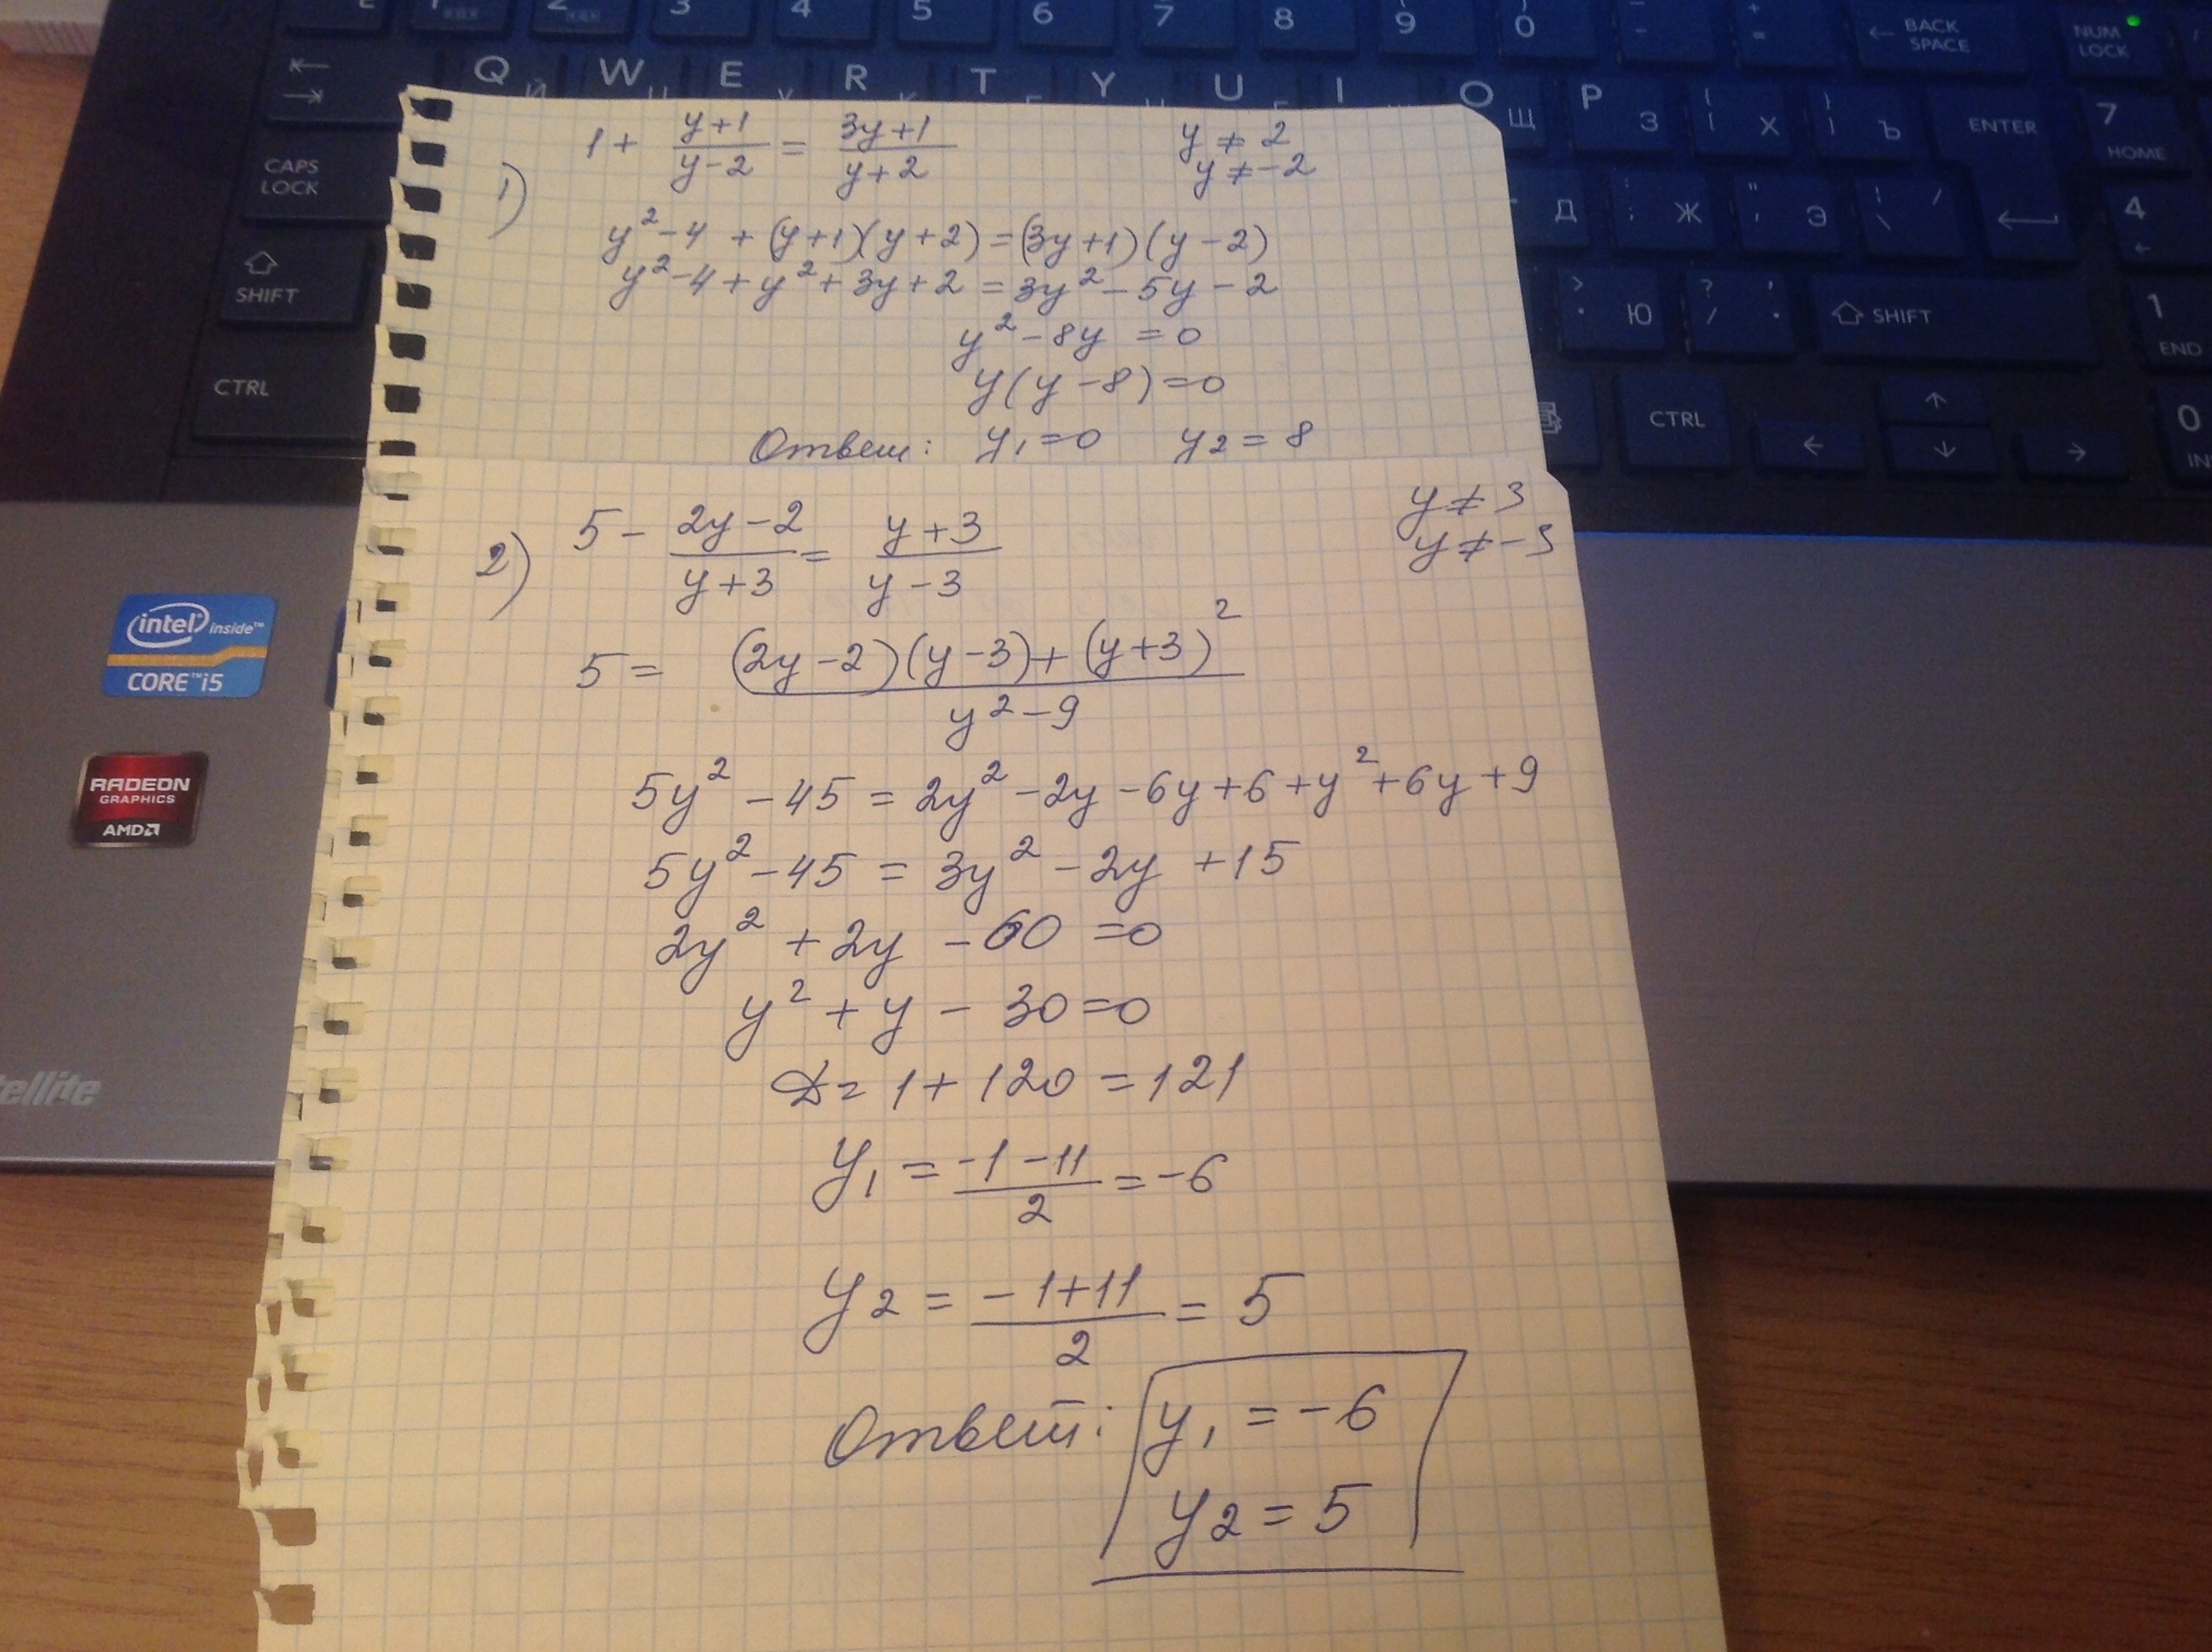 2 3 4 5 6 7 8 9 0 - + = ← BACK SPACE NUM LOCK
Q W E R T Y U I O P
Щ З Х Ъ ENTER 7 HOME
CAPS LOCK
Д Ж Э 4
SHIFT
Ю SHIFT 1 END
CTRL
CTRL 0
1) 1 + (y+1)/(y-2) = (3y+1)/(y+2) y ≠ 2
y ≠ -2
y² - 4 + (y+1)(y+2) = (3y+1)(y-2)
y² - 4 + y² + 3y + 2 = 3y² - 5y - 2
y² - 8y = 0
y(y - 8) = 0
Ответ: y₁ = 0 y₂ = 8
2) 5 - (2y-2)/(y+3) = (y+3)/(y-3) y ≠ 3
y ≠ -3
5 = ((2y-2)(y-3) + (y+3)²)/(y²-9)
5y² - 45 = 2y² - 2y - 6y + 6 + y² + 6y + 9
5y² - 45 = 3y² - 2y + 15
2y² + 2y - 60 = 0
y² + y - 30 = 0
D = 1 + 120 = 121
y₁ = (-1-11)/2 = -6
y₂ = (-1+11)/2 = 5
Ответ: y₁ = -6
y₂ = 5
intel inside™
CORE™ i5
RADEON
GRAPHICS
AMD
ellite